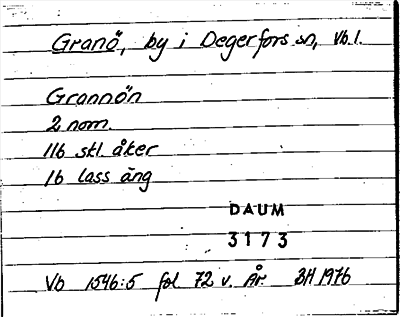 Granö, by i Degerfors sn, Vb l.
Grannön
2 nom.
11b skl. åker
1b lass äng
DAUM
3173
Vb 1546:5 fol 72 v. År. BH 1976